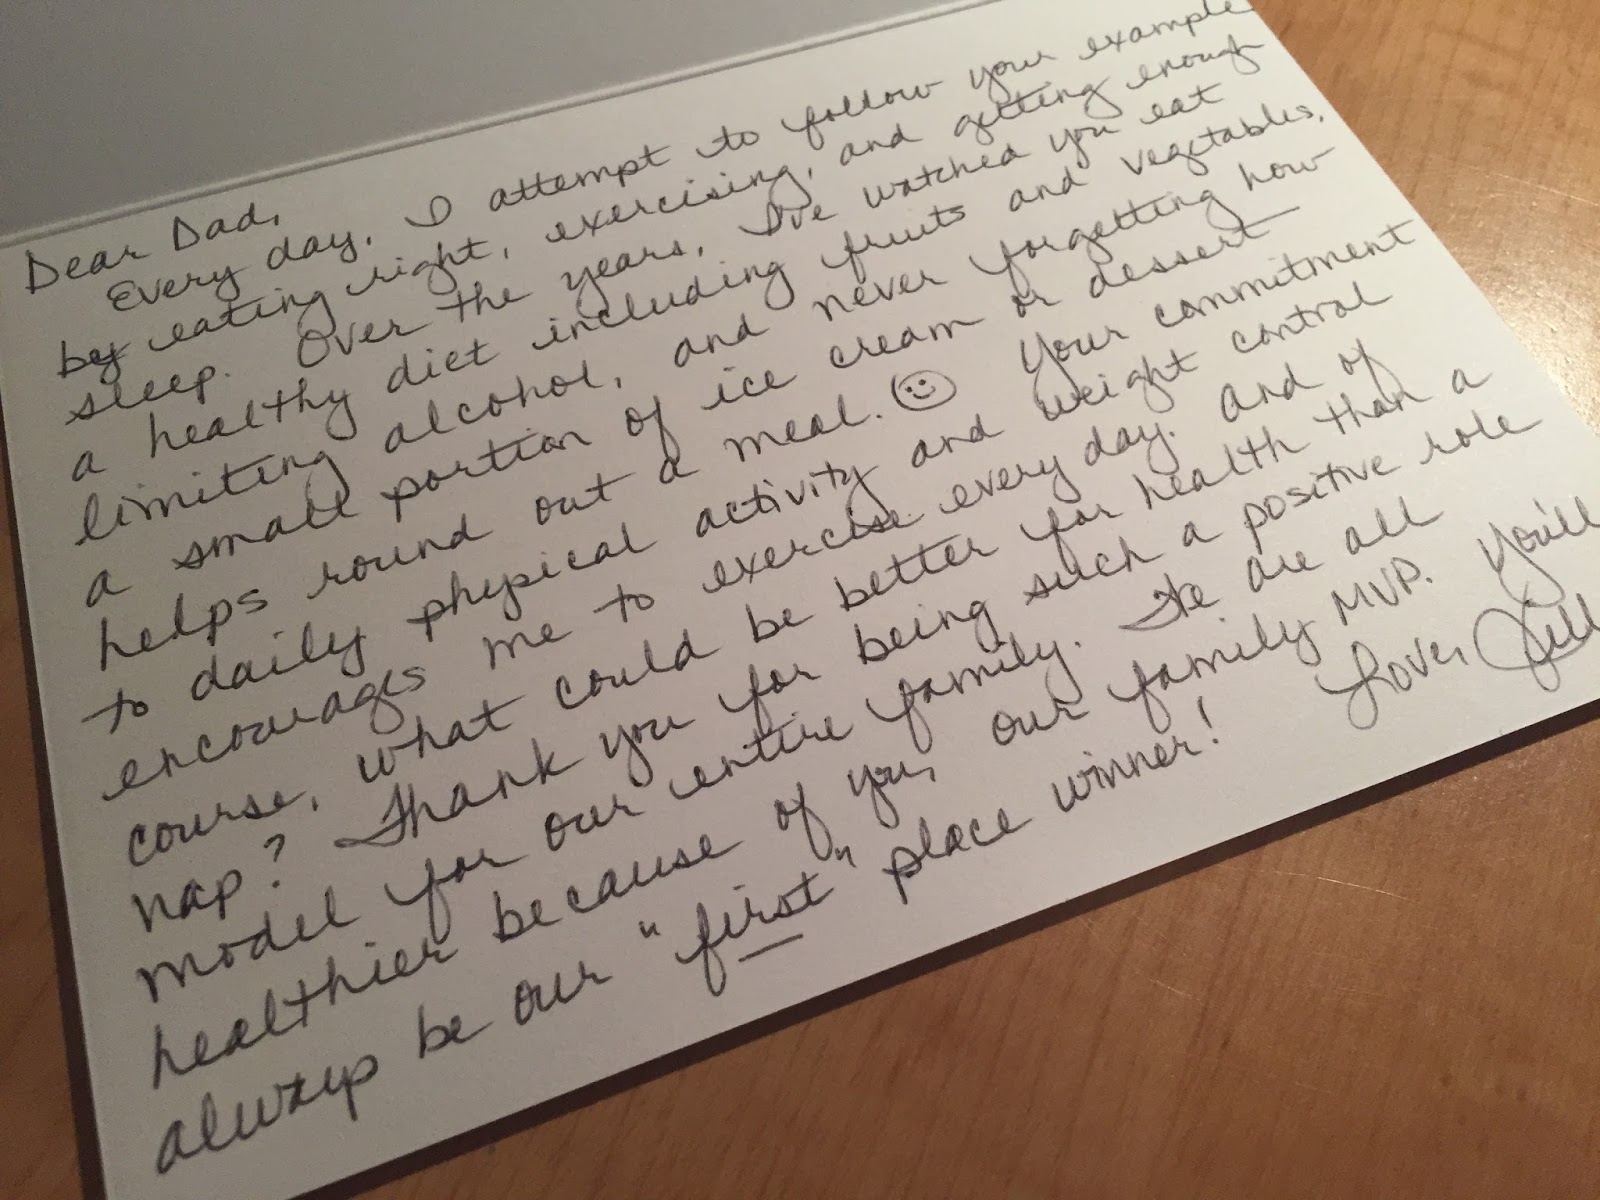 Dear Dad,
Every day, I attempt to follow your example
by eating right, exercising, and getting enough
sleep. Over the years, I've watched you eat
a healthy diet including fruits and vegetables,
limiting alcohol, and never forgetting how
a small portion of ice cream or dessert
helps round out a meal. ☺ Your commitment
to daily physical activity and weight control
encourages me to exercise every day. And of
course, what could be better for health than a
nap? Thank you for being such a positive role
model for our entire family. We are all
healthier because of you, our family MVP. You'll
always be our "first" place winner! Love, Jill